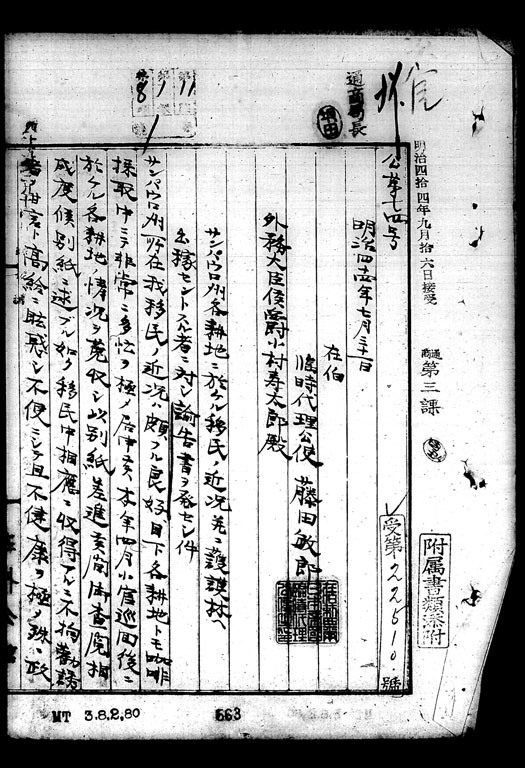 官
通商局長
第11
第1
第8
明治四拾四年九月拾六日接受
通商
第三課
附属書類添附
受第22510號
公第七四号
明治四十四年七月三十一日
在伯
臨時代理公使 藤田敏郎
外務大臣侯爵小村寿太郎殿
サンパウロ州各耕地ニ於ケル移民ノ近況並ニ護謨林ヘ
出稼セントスル者ニ対シ諭告書ヲ発セシ件
サンパウロ州所在我移民ノ近況ハ頗ル良好目下各耕地トモ咖啡
採取中ニテ非常ニ多忙ヲ極メ居申候本年四月小官巡回後ニ
於ケル各耕地ノ情況ヲ蒐収シ以別紙差進候間御査閲相
成度候別紙ニ述フル如ク移民中相應ニ収得アルニ不拘勧誘
者ノ甘言ト高給ニ眩惑シ不便ニシテ且不健康ヲ極メ殊ニ政
MT 3.8.2.80
563